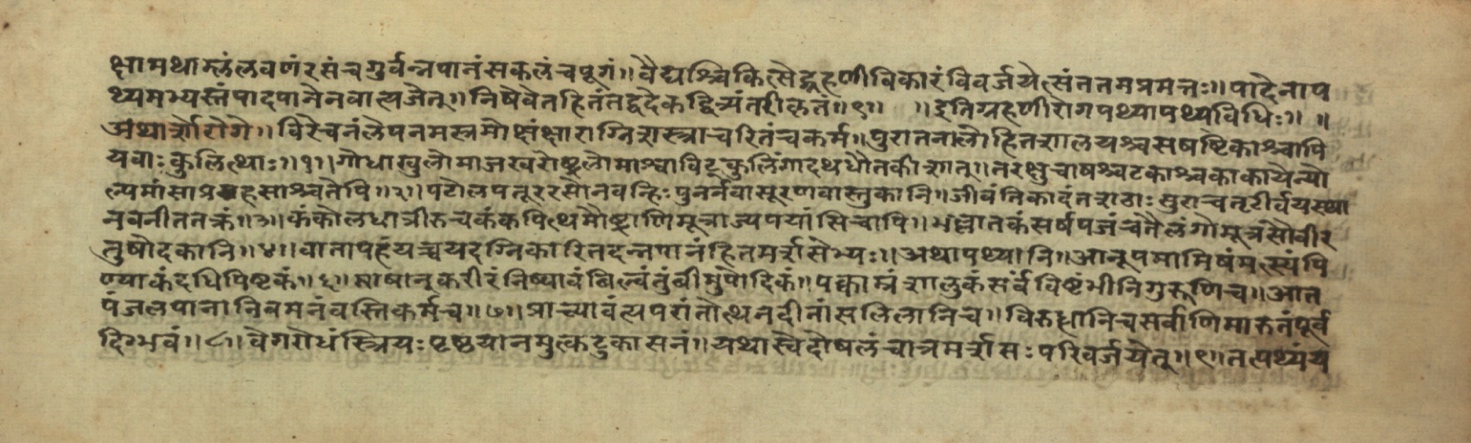 क्षामथाम्लंलवणंरसंचगुर्वन्नपानंसकलंचपूगं॥वैद्यश्चिकित्सेद्ग्रहणीविकारंविवर्जयेत्संततमप्रमत्तः॥पादेनाप
थ्यमभ्यस्तंपादपानेनवात्यजेत्॥निषेवेतहितंतद्वदेकद्वित्र्यंतरीकृतं॥९॥ ॥इतिग्रहणीरोगपथ्यापथ्यविधिः॥ ॥
अथार्शोरोगे॥विरेचनंलेपनमस्रमोक्षंक्षाराग्निशस्त्राचरितंचकर्म॥पुरातनालोहितशालयश्चसषष्टिकाश्चापि
यवाःकुलित्थाः॥१॥गोधाखुलोमाजखरोष्ट्रलोमाश्वाविट्कुलिंगादथधौतकीशात्॥तरक्षुचाषश्चटकाश्चकाकायेन्यो
ल्पमांसाप्रसहसाश्चतेपि॥२॥पटोलपतूररसोनवन्हिःपुनर्नवासूरणवास्तुकानि॥जीवंतिकादंतशठाःसुराचतृटीर्वयस्था
नवनीततक्रं॥३॥कंकोलधात्रीरुचकंकपित्थमौष्ट्राणिमूत्राज्यपयांसिचापि॥भल्लातकंसर्षपजंचतैलंगोमूत्रसौवीर
तुषोदकानि॥४॥वातापहंयच्चयदग्निकारितदन्नपानंहितमर्शसेभ्यः॥अथापथ्यानि॥आनूपमामिषंमत्स्यंपि
ण्याकंदधिपिष्टकं॥६॥माषान्करीरंनिष्पावंबिल्वंतुंबीमुपोदिकं॥पक्वाम्रंशालुकंसर्वंविष्टंभीनिगुरूणिच॥आत
पंजलपानानिवमनंवस्तिकर्मच॥७॥प्राच्यावंत्यपरांतोत्थनदीनांसलिलानिच॥विरुद्धानिचसर्वाणिमारुतंपूर्व
दिग्भवं॥८॥वेगरोधंस्त्रियःपृष्ठयानमुत्कटुकासनं॥यथास्वंदोषलंचान्नमर्शसःपरिवर्जयेत्॥९॥तत्पथ्यंय